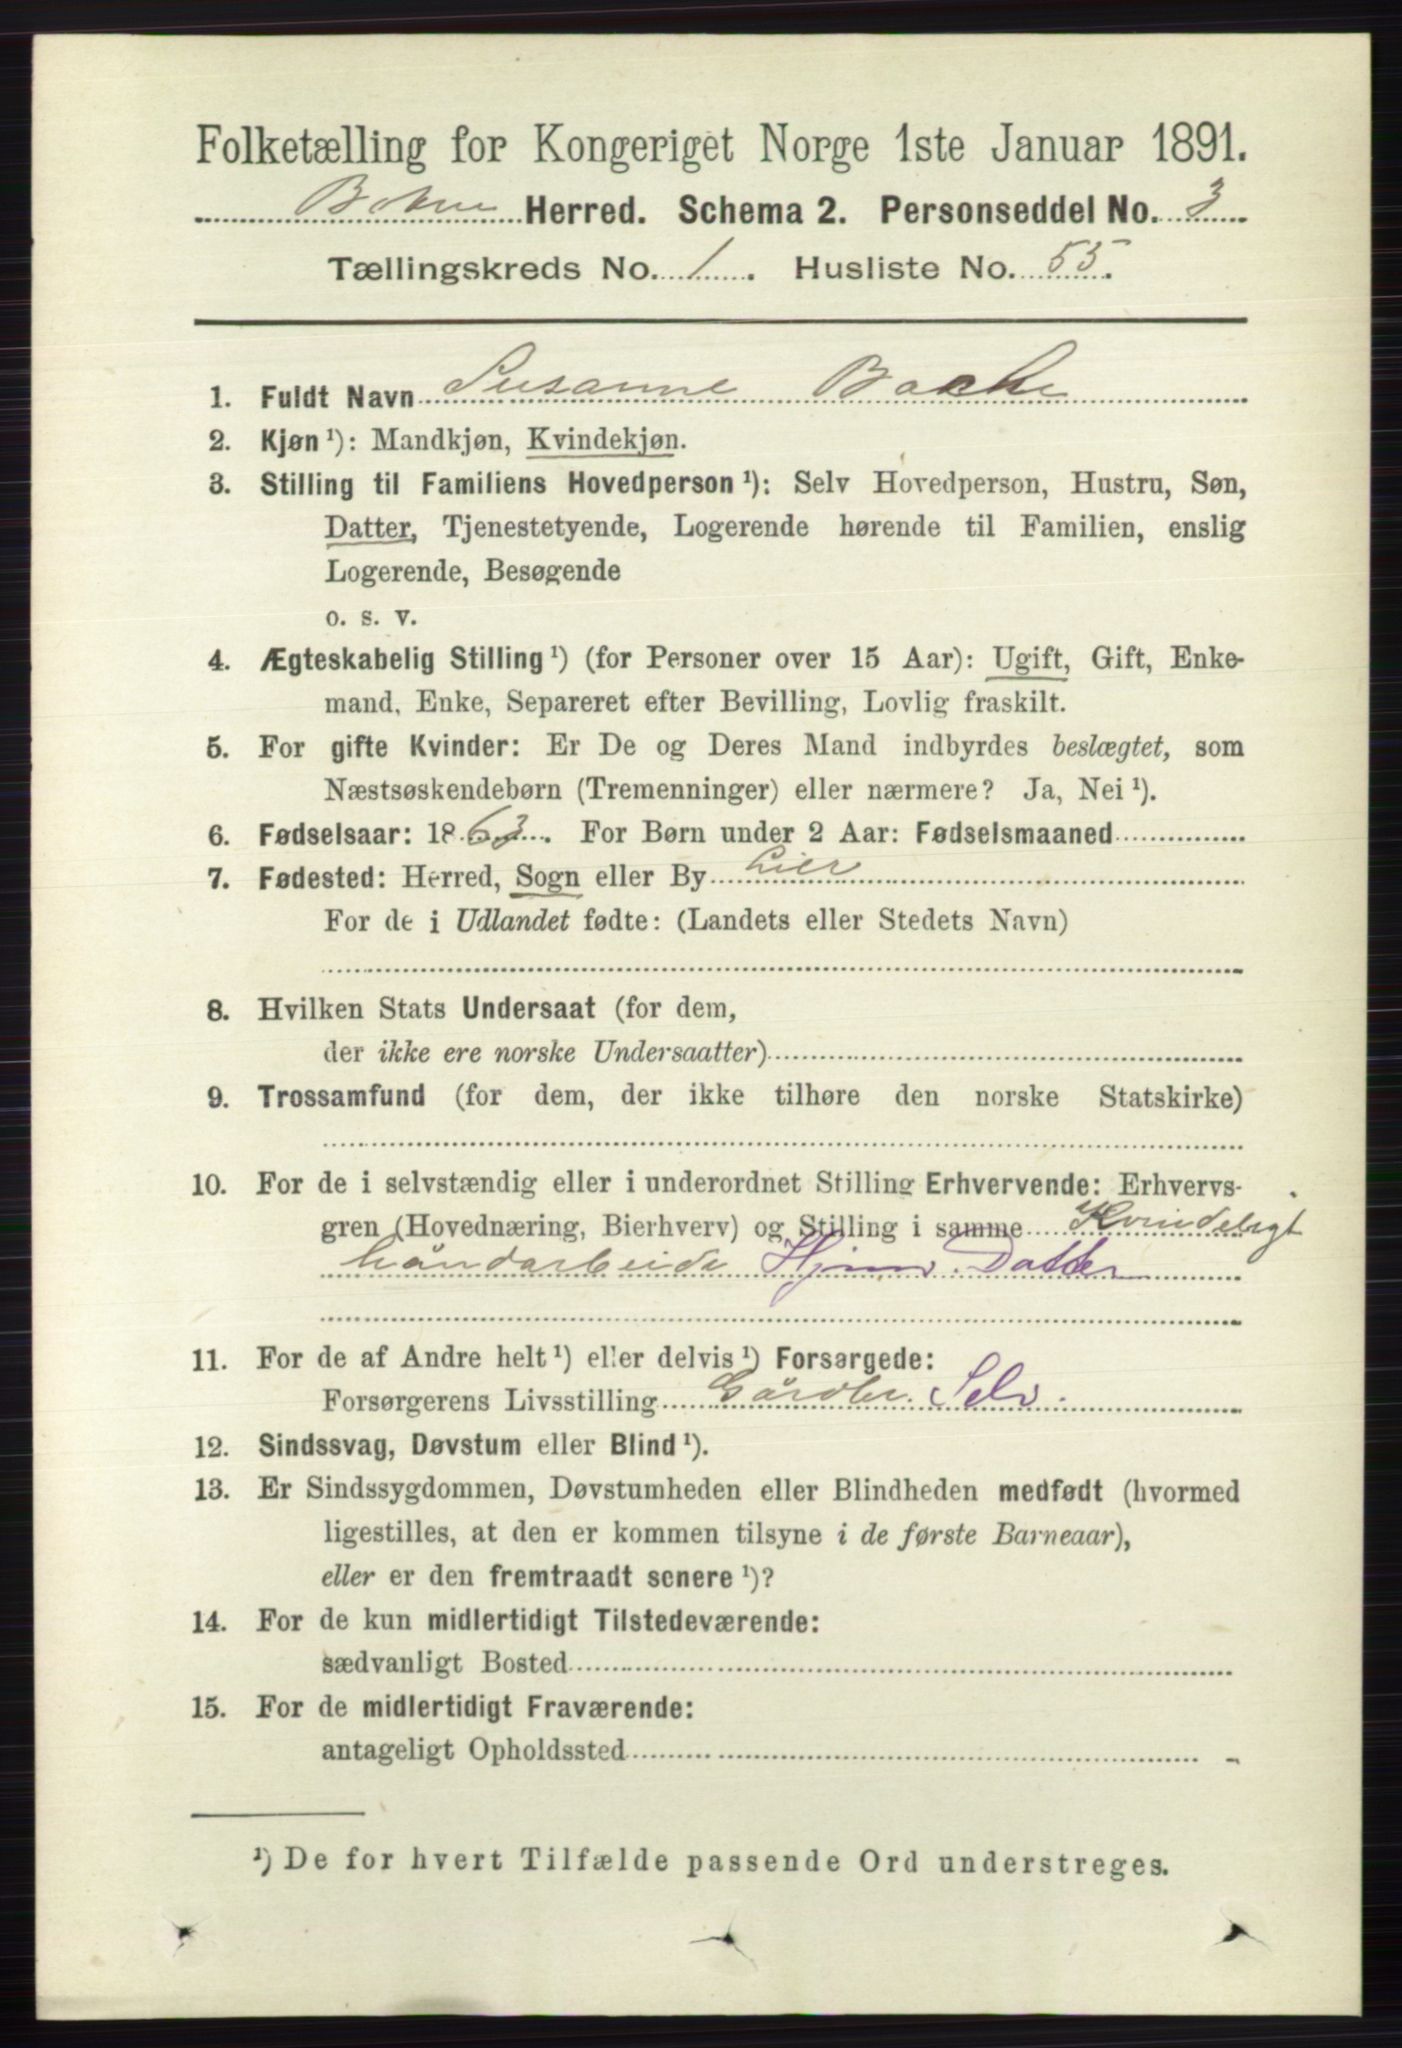 Folketælling for Kongeriget Norge 1ste Januar 1891.
Botne Herred. Schema 2. Personseddel No. 3
Tællingskreds No. 1. Husliste No. 55.
1. Fuldt Navn Susanne Bache
2. Kjøn ¹): Mandkjøn, Kvindekjøn.
3. Stilling til Familiens Hovedperson ¹): Selv Hovedperson, Hustru, Søn,
Datter, Tjenestetyende, Logerende hørende til Familien, enslig
Logerende, Besøgende
o. s. v.
4. Ægteskabelig Stilling ¹) (for Personer over 15 Aar): Ugift, Gift, Enke-
mand, Enke, Separeret efter Bevilling, Lovlig fraskilt.
5. For gifte Kvinder: Er De og Deres Mand indbyrdes beslægtet, som
Næstsøskendebørn (Tremenninger) eller nærmere? Ja, Nei ¹).
6. Fødselsaar: 1863. For Børn under 2 Aar: Fødselsmaaned
7. Fødested: Herred, Sogn eller By Lier
For de i Udlandet fødte: (Landets eller Stedets Navn)
8. Hvilken Stats Undersaat (for dem,
der ikke ere norske Undersaatter)
9. Trossamfund (for dem, der ikke tilhøre den norske Statskirke)
10. For de i selvstændig eller i underordnet Stilling Erhvervende: Erhvervs-
gren (Hovednæring, Bierhverv) og Stilling i samme Kvindeligt
håndarbeide Hjmv. Datter
11. For de af Andre helt ¹) eller delvis ¹) Forsørgede:
Forsørgerens Livsstilling Gårdbr. Selv.
12. Sindssvag, Døvstum eller Blind ¹).
13. Er Sindssygdommen, Døvstumheden eller Blindheden medfødt (hvormed
ligestilles, at den er kommen tilsyne i de første Barneaar),
eller er den fremtraadt senere ¹)?
14. For de kun midlertidigt Tilstedeværende:
sædvanligt Bosted
15. For de midlertidigt Fraværende:
antageligt Opholdssted
¹) De for hvert Tilfælde passende Ord understreges.